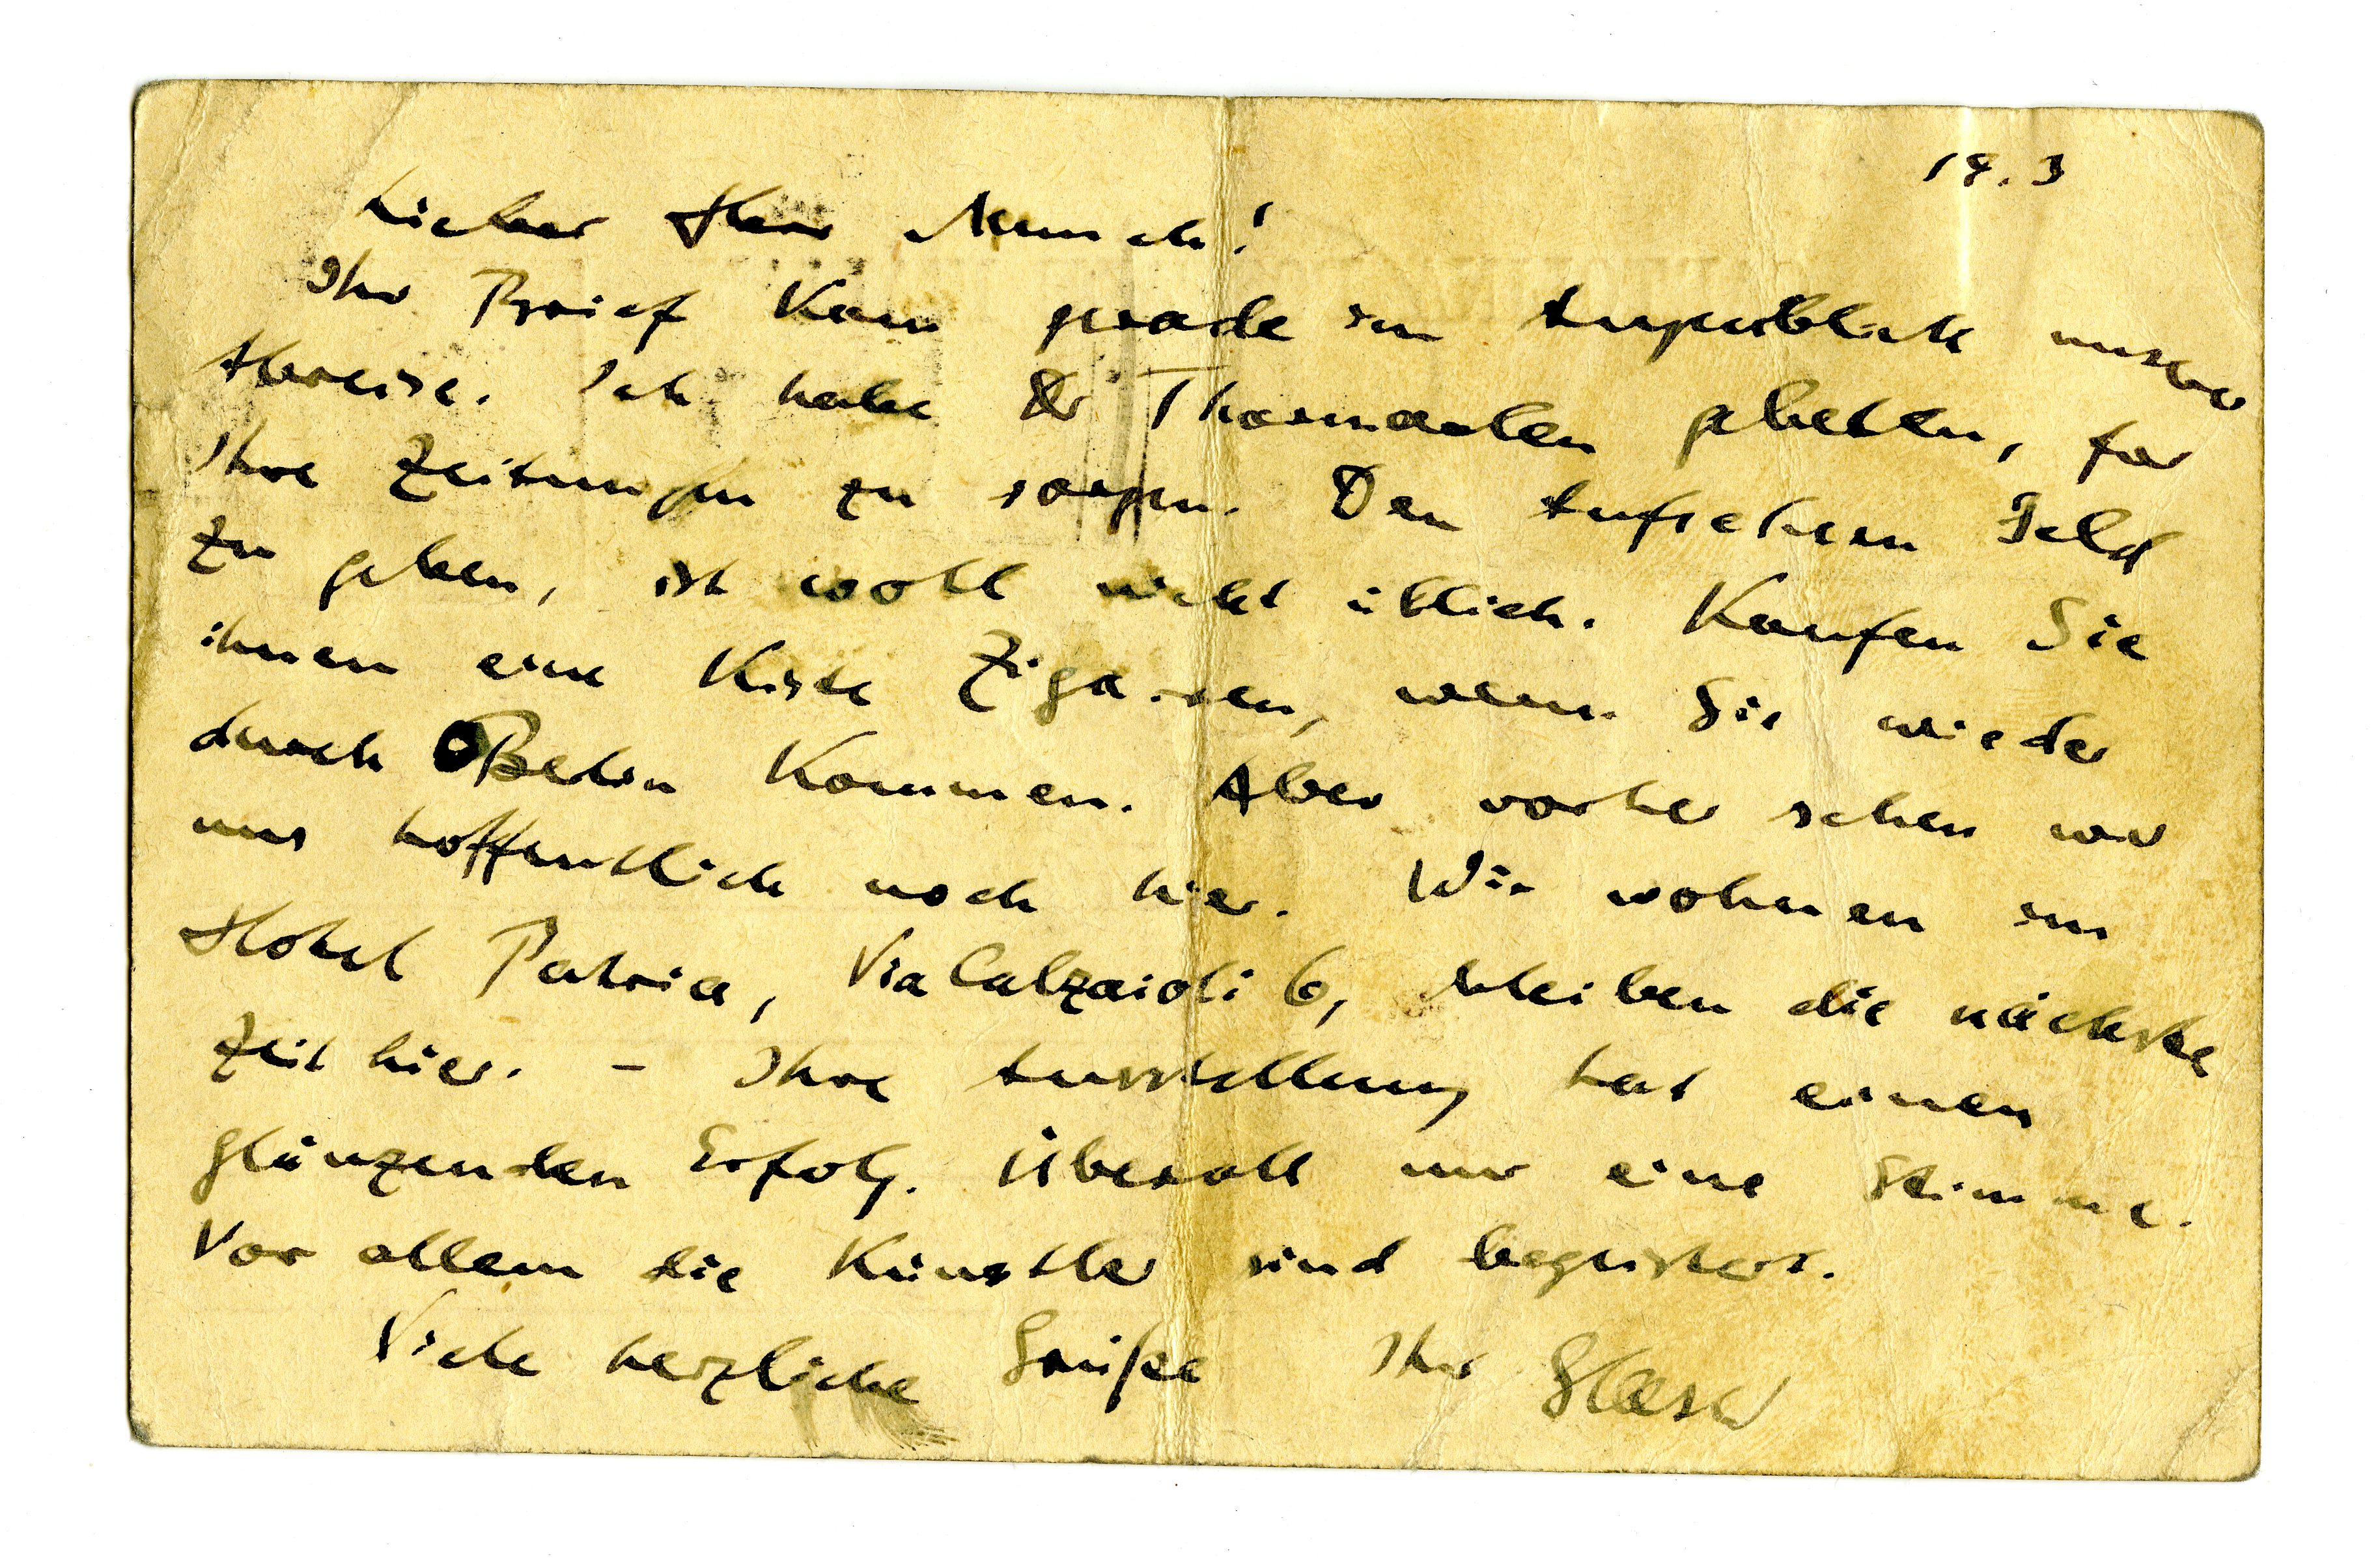 19.3
Lieber Herr Munch!
Ihr Brief kam grade im Augenblick unsrer
Abreise. Ich habe Dr Thormaelen gebeten, für
Ihre Zeitungen zu sorgen. Den Aufsehern Geld
zu geben, ist wohl nicht üblich. Kaufen Sie
ihnen eine Kiste Zigarren, wenn Sie wieder
durch Berlin kommen. Aber vorher sehen wir
uns hoffentlich noch hier. Wir wohnen im
Hotel Patria, Via Calzaioli 6, bleiben die nächste
Zeit hier. – Ihre Ausstellung hat einen
glänzenden Erfolg. Überall nur eine Stimme.
Vor allem die Künstler sind begeistert.
Viele herzliche Grüße Ihr Glaser